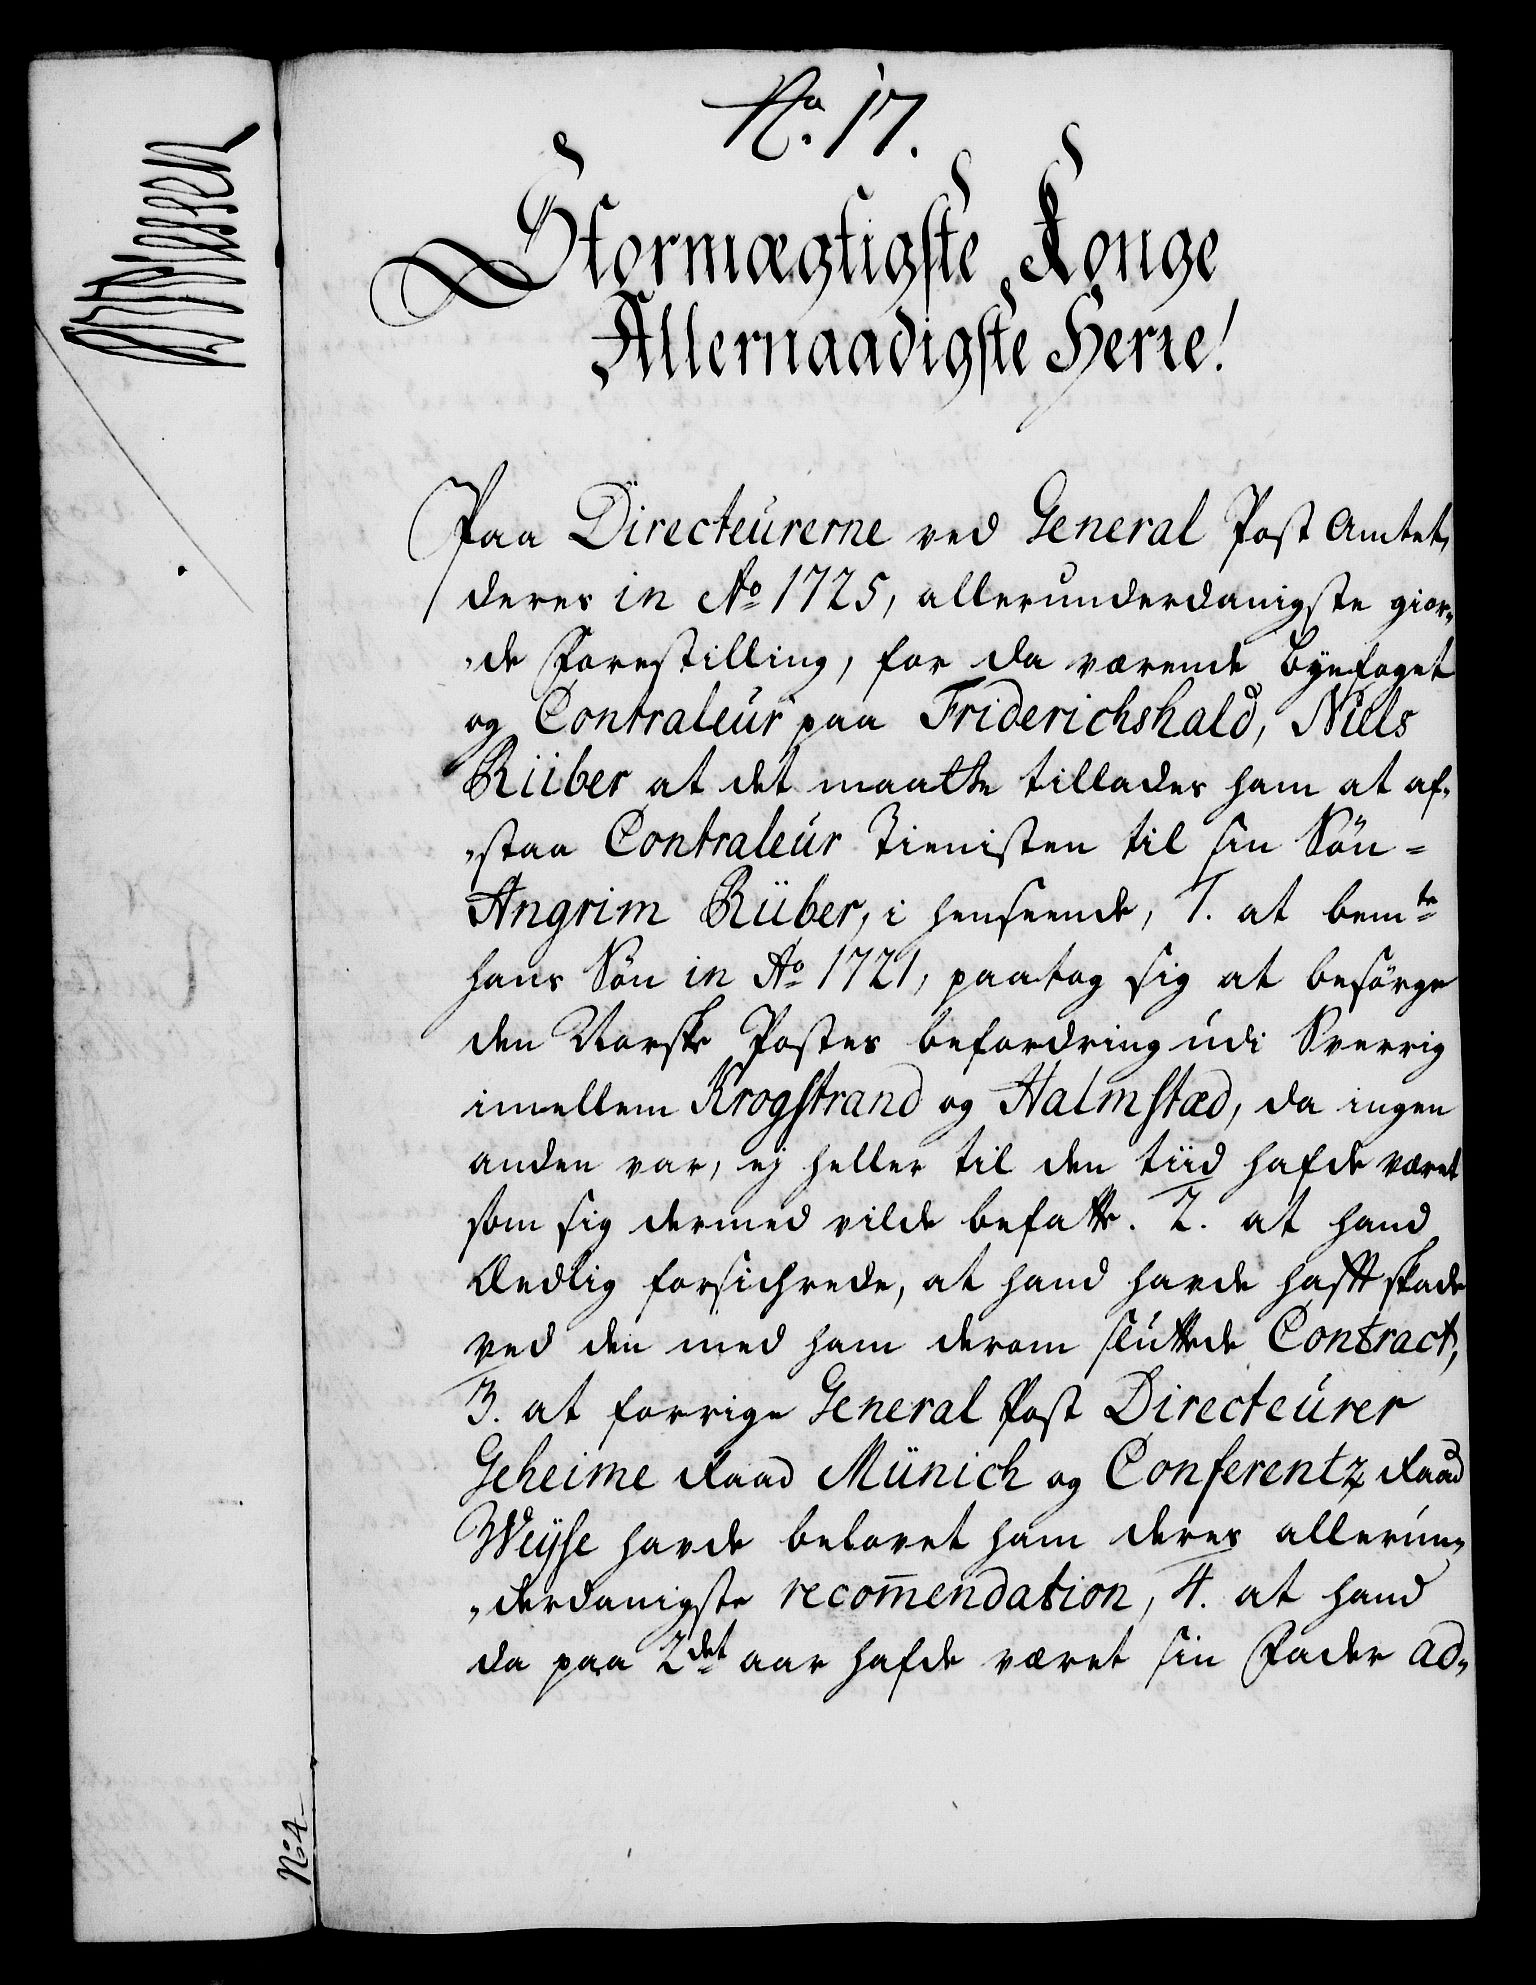 No. 17.
Stormægtigste Konge
Allernaadigste Herre!
Paa Directeurerne ved General Post Amtet,
deres in Ao 1725, allerunderdanigste gior-
-de Forestilling, for da værende Byefoget
og Contraleur paa Friderichshald, Niels
Rüber at det maatte tillades ham at af-
-staa Contraleur Tienisten til sin Søn =
Angrim Rüber, i henseende, 1. at bemte
hans Søn in Ao 1721, paatog sig at besørge
den Norske Postes befordring udi Sverrig
imellem Krogstrand og Halmstæd, da ingen
anden var, ej heller til den tiid hafde været
som sig dermed vilde befatte. 2. at hand
Ædlig forsichrede, at hand havde hafft skade
ved den med ham derom sluttede Contract,
3. at forrige General Post Directeurer
Geheime Raad Münich og Conferentz Raad
Weyse havde belovet ham deres allerun-
-derdanigste recom̄endation, 4. at hand
da paa 2det aar hafde været sin Fader ad-
No 4